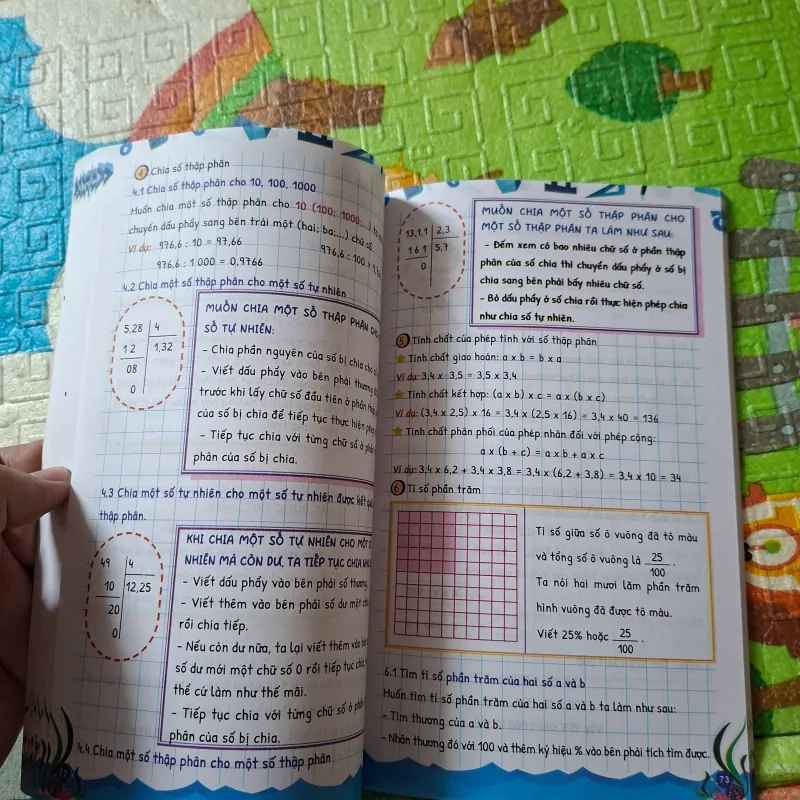 4 Chia số thập phân
4.1 Chia số thập phân cho 10, 100, 1000
Muốn chia một số thập phân cho 10 (100; 1000;...)
chuyển dấu phẩy sang bên trái một (hai; ba;...) chữ số.
Ví dụ: 976,6 : 10 = 97,66
976,6 : 100 =
976,6 : 1000 = 0,9766
4.2 Chia một số thập phân cho một số tự nhiên
5,28 4
1 2 1,32
08
0
MUỐN CHIA MỘT SỐ THẬP PHÂN CHO
SỐ TỰ NHIÊN:
- Chia phần nguyên của số bị chia cho
- Viết dấu phẩy vào bên phải thương
trước khi lấy chữ số đầu tiên ở phần
của số bị chia để tiếp tục thực hiện
- Tiếp tục chia với từng chữ số ở
phân của số bị chia.
4.3 Chia một số tự nhiên cho một số tự nhiên được kết
thập phân.
49 4
10 12,25
20
0
KHI CHIA MỘT SỐ TỰ NHIÊN CHO MỘT
NHIÊN MÀ CÒN DƯ, TA TIẾP TỤC CHIA
- Viết dấu phẩy vào bên phải số thương.
- Viết thêm vào bên phải số dư một
rồi chia tiếp.
- Nếu còn dư nữa, ta lại viết thêm vào
số dư mới một chữ số 0 rồi tiếp tục chia
thế cứ làm như thế mãi.
- Tiếp tục chia với từng chữ số ở
phân của số bị chia.
4.4 Chia một số thập phân cho một số thập phân
72
13,1,1 2,3
1 6 1 5,7
0
MUỐN CHIA MỘT SỐ THẬP PHÂN CHO
MỘT SỐ THẬP PHÂN TA LÀM NHƯ SAU:
- Đếm xem có bao nhiêu chữ số ở phần thập
phân của số chia thì chuyển dấu phẩy ở số bị
chia sang bên phải bấy nhiêu chữ số.
- Bỏ dấu phẩy ở số chia rồi thực hiện phép chia
như chia số tự nhiên.
5 Tính chất của phép tính với số thập phân
Tính chất giao hoán: a x b = b x a
Ví dụ: 3,4 x 3,5 = 3,5 x 3,4
Tính chất kết hợp: (a x b) x c = a x (b x c)
Ví dụ: (3,4 x 2,5) x 16 = 3,4 x (2,5 x 16) = 3,4 x 40 = 136
Tính chất phân phối của phép nhân đối với phép cộng:
a x (b + c) = a x b + a x c
Ví dụ: 3,4 x 6,2 + 3,4 x 3,8 = 3,4 x (6,2 + 3,8) = 3,4 x 10 = 34
6 Tỉ số phần trăm
Tỉ số giữa số ô vuông đã tô màu
và tổng số ô vuông là 25/100.
Ta nói hai mươi lăm phần trăm
hình vuông đã được tô màu.
Viết 25% hoặc 25/100.
6.1 Tìm tỉ số phần trăm của hai số a và b
Muốn tìm tỉ số phần trăm của hai số a và b ta làm như sau:
- Tìm thương của a và b.
- Nhân thương đó với 100 và thêm ký hiệu % vào bên phải tích tìm được.
73